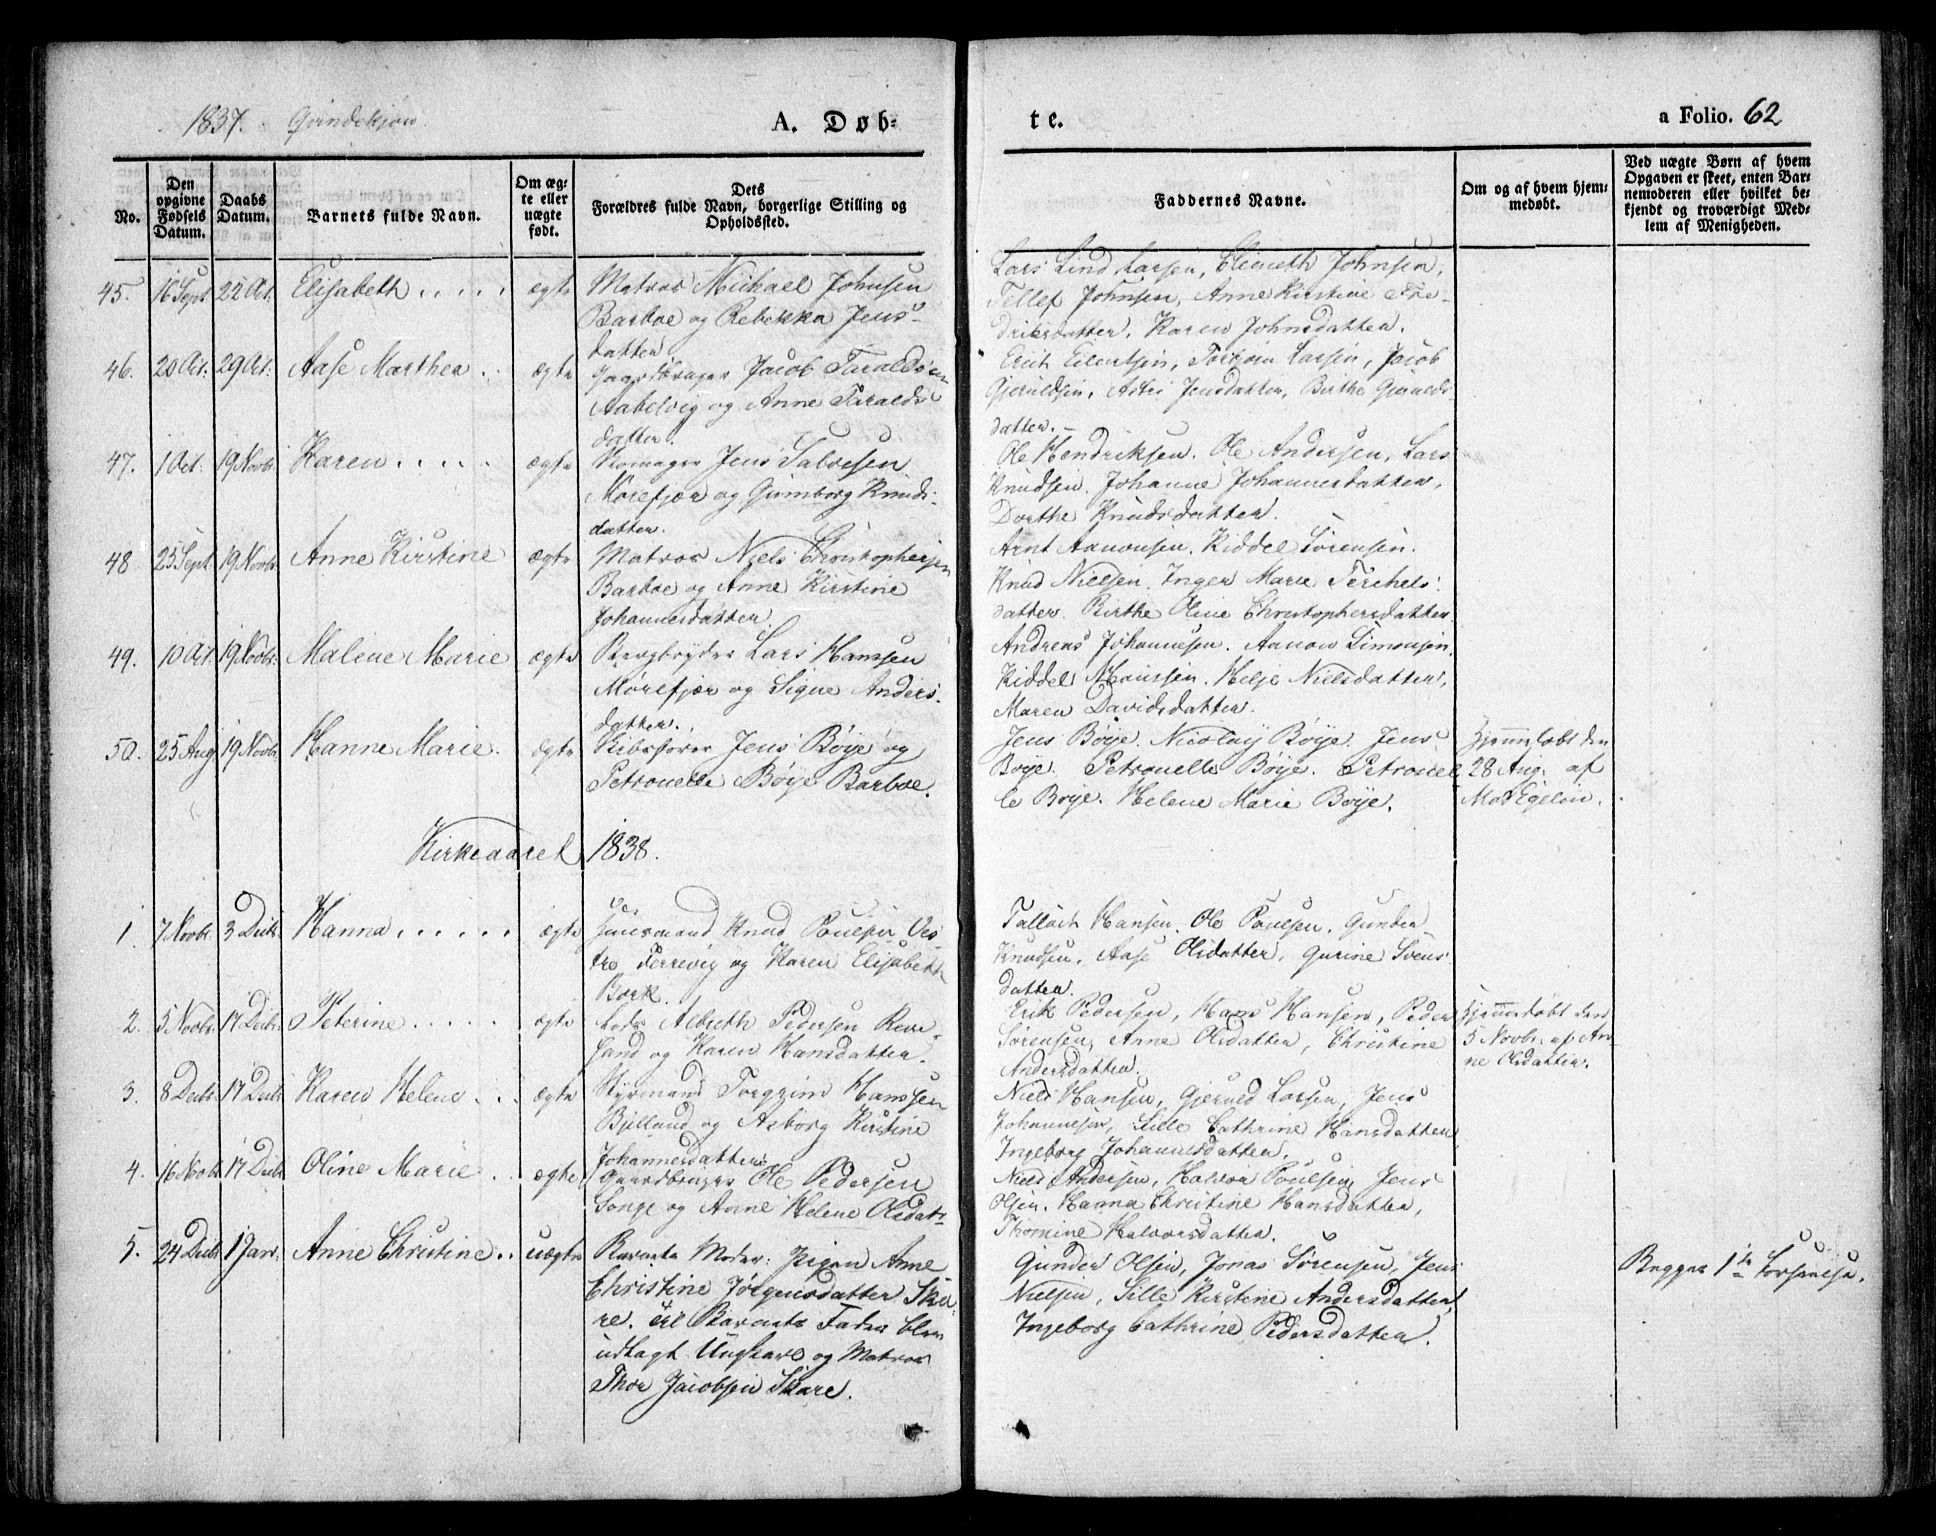 1837. Qvindekjøn.
A. Døb-
te.
a Folio. 62
No.
Den opgivne Fødsels Datum.
Daabs Datum.
Barnets fulde Navn.
Om ægte eller uægte født.
Dets Forældres fulde Navn, borgerlige Stilling og Opholdssted.
Faddernes Navne.
Om og af hvem hjemmedøbt.
Ved uægte Børn af hvem Opgaven er skeet, enten Barnemoderen eller hvilket bekjendt og troværdigt Medlem af Menigheden.
45. 16 Sept. 22 Oct. Elisabeth ægte
Matros Michael Johnsen
Barboe og Rebekka Jens-
datter.
Lars Lind Larsen, Johnsen,
Tellef Johnsen, Anne Kirstine Fre-
driksdatter, Karen Johnsdatter.
46. 20 Oct. 29 Oct. Aase Marthea ægte
Gaardbruger Jacob Taraldsen
Aabelvig og Anne Taralds-
datter.
Erich Eilertsen, Torbjørn Larsen, Jacob
Gjeruldsen, Jensdatter, Birthe Gjerulds
datter.
47. 1 Oct. 19 Novbr. Karen ægte
Skomager Jens Salvesen
Mørefjær og Gunborg Knuds-
datter.
Ole Hendriksen. Ole Andersen, Lars
Knudsen. Johanne Johannesdatter,
Dorthe Knudsdatter.
48 25 Sept. 19 Novbr. Anne Kirstine ægte
Matros Niels Christophersen
Barboe og Anne Kirstine
Johannesdatter.
Arnt Aanonsen. Kiddel Sørensen.
Knud Nielsen. Inger Marie Terkels-
datter. Birthe Oline Christophersdatter
49. 10 Oct. 19 Novbr. Malene Marie ægte
Bergbryder Lars Hansen
Mørefjær og Signe Anders-
datter.
Andreas Johannesen. Aanon Simonsen.
Kiddel Hansen. Helje Nielsdatter,
Maren Davidsdatter.
50. 25 Aug. 19 Novbr. Hanne Marie. ægte
Skibsfører Jens Bøye og
Petronelle Bøye Barboe.
Jens Bøye. Nicolay Bøye. Jens
Bøye. Petronelle Bøye. Petronel-
le Bøye. Helene Marie Bøye.
Hjemmedøbt den
28 Aug. af
Mad. Egelin.
Kirkeaaret 1838.
1. 7 Novbr. 3 Decbr. Hanna ægte
Huusmand Knud Poulsen Ves-
tre Torrevig og Karen Elisabeth
Bærk.
Tallack Hansen. Ole Poulsen. Gunder
Knudsen, Aase Olsdatter, Gurine Svens-
datter.
2. 5 Novbr. 17 Decbr. Peterine ægte
Lods Albreth Pedersen Reve-
sand og Karen Hansdatter.
Erik Pedersen, Hans Hansen, Peder
Sørensen, Anne Olsdatter, Christine
Andersdatter.
Hjemmedøbt den
5 Novbr. af An-
ne Olsdatter.
3. 8 Decbr. 17 Decbr. Karen Helene ægte
Styrmand Torgrim Hanssen
Bjelland og Asborg Kirstine
Johannesdatter.
Niels Hansen, Gjeruld Larsen, Jens
Johannesen, Sille Cathrine Hansdatter
Ingeborg Johannesdatter.
4. 16 Novbr. 17 Decbr. Oline Marie ægte
Gaardbruger Ole Pedersen
Songe og Anne Helene Olsdatr.
Niels Andersen, Halvor Poulsen, Jens
Olsen. Hanna Christine Hansdatter,
Thomine Halvorsdatter.
5. 24 Decbr. 1 Janr. Anne Christine uægte
Barnets Moder: Pigen Anne
Christine Jørgensdatter Ska-
re. Til Barnets Fader blev
udlagt Ungkarl og Matros
Thor Jacobsen Skare.
Gunder Olsen, Jonas Sørensen, Jens
Nielsen, Sille Kirstine Andersdatter
Ingeborg Cathrine Pedersdatter.
Begges 1ste Forseelse.